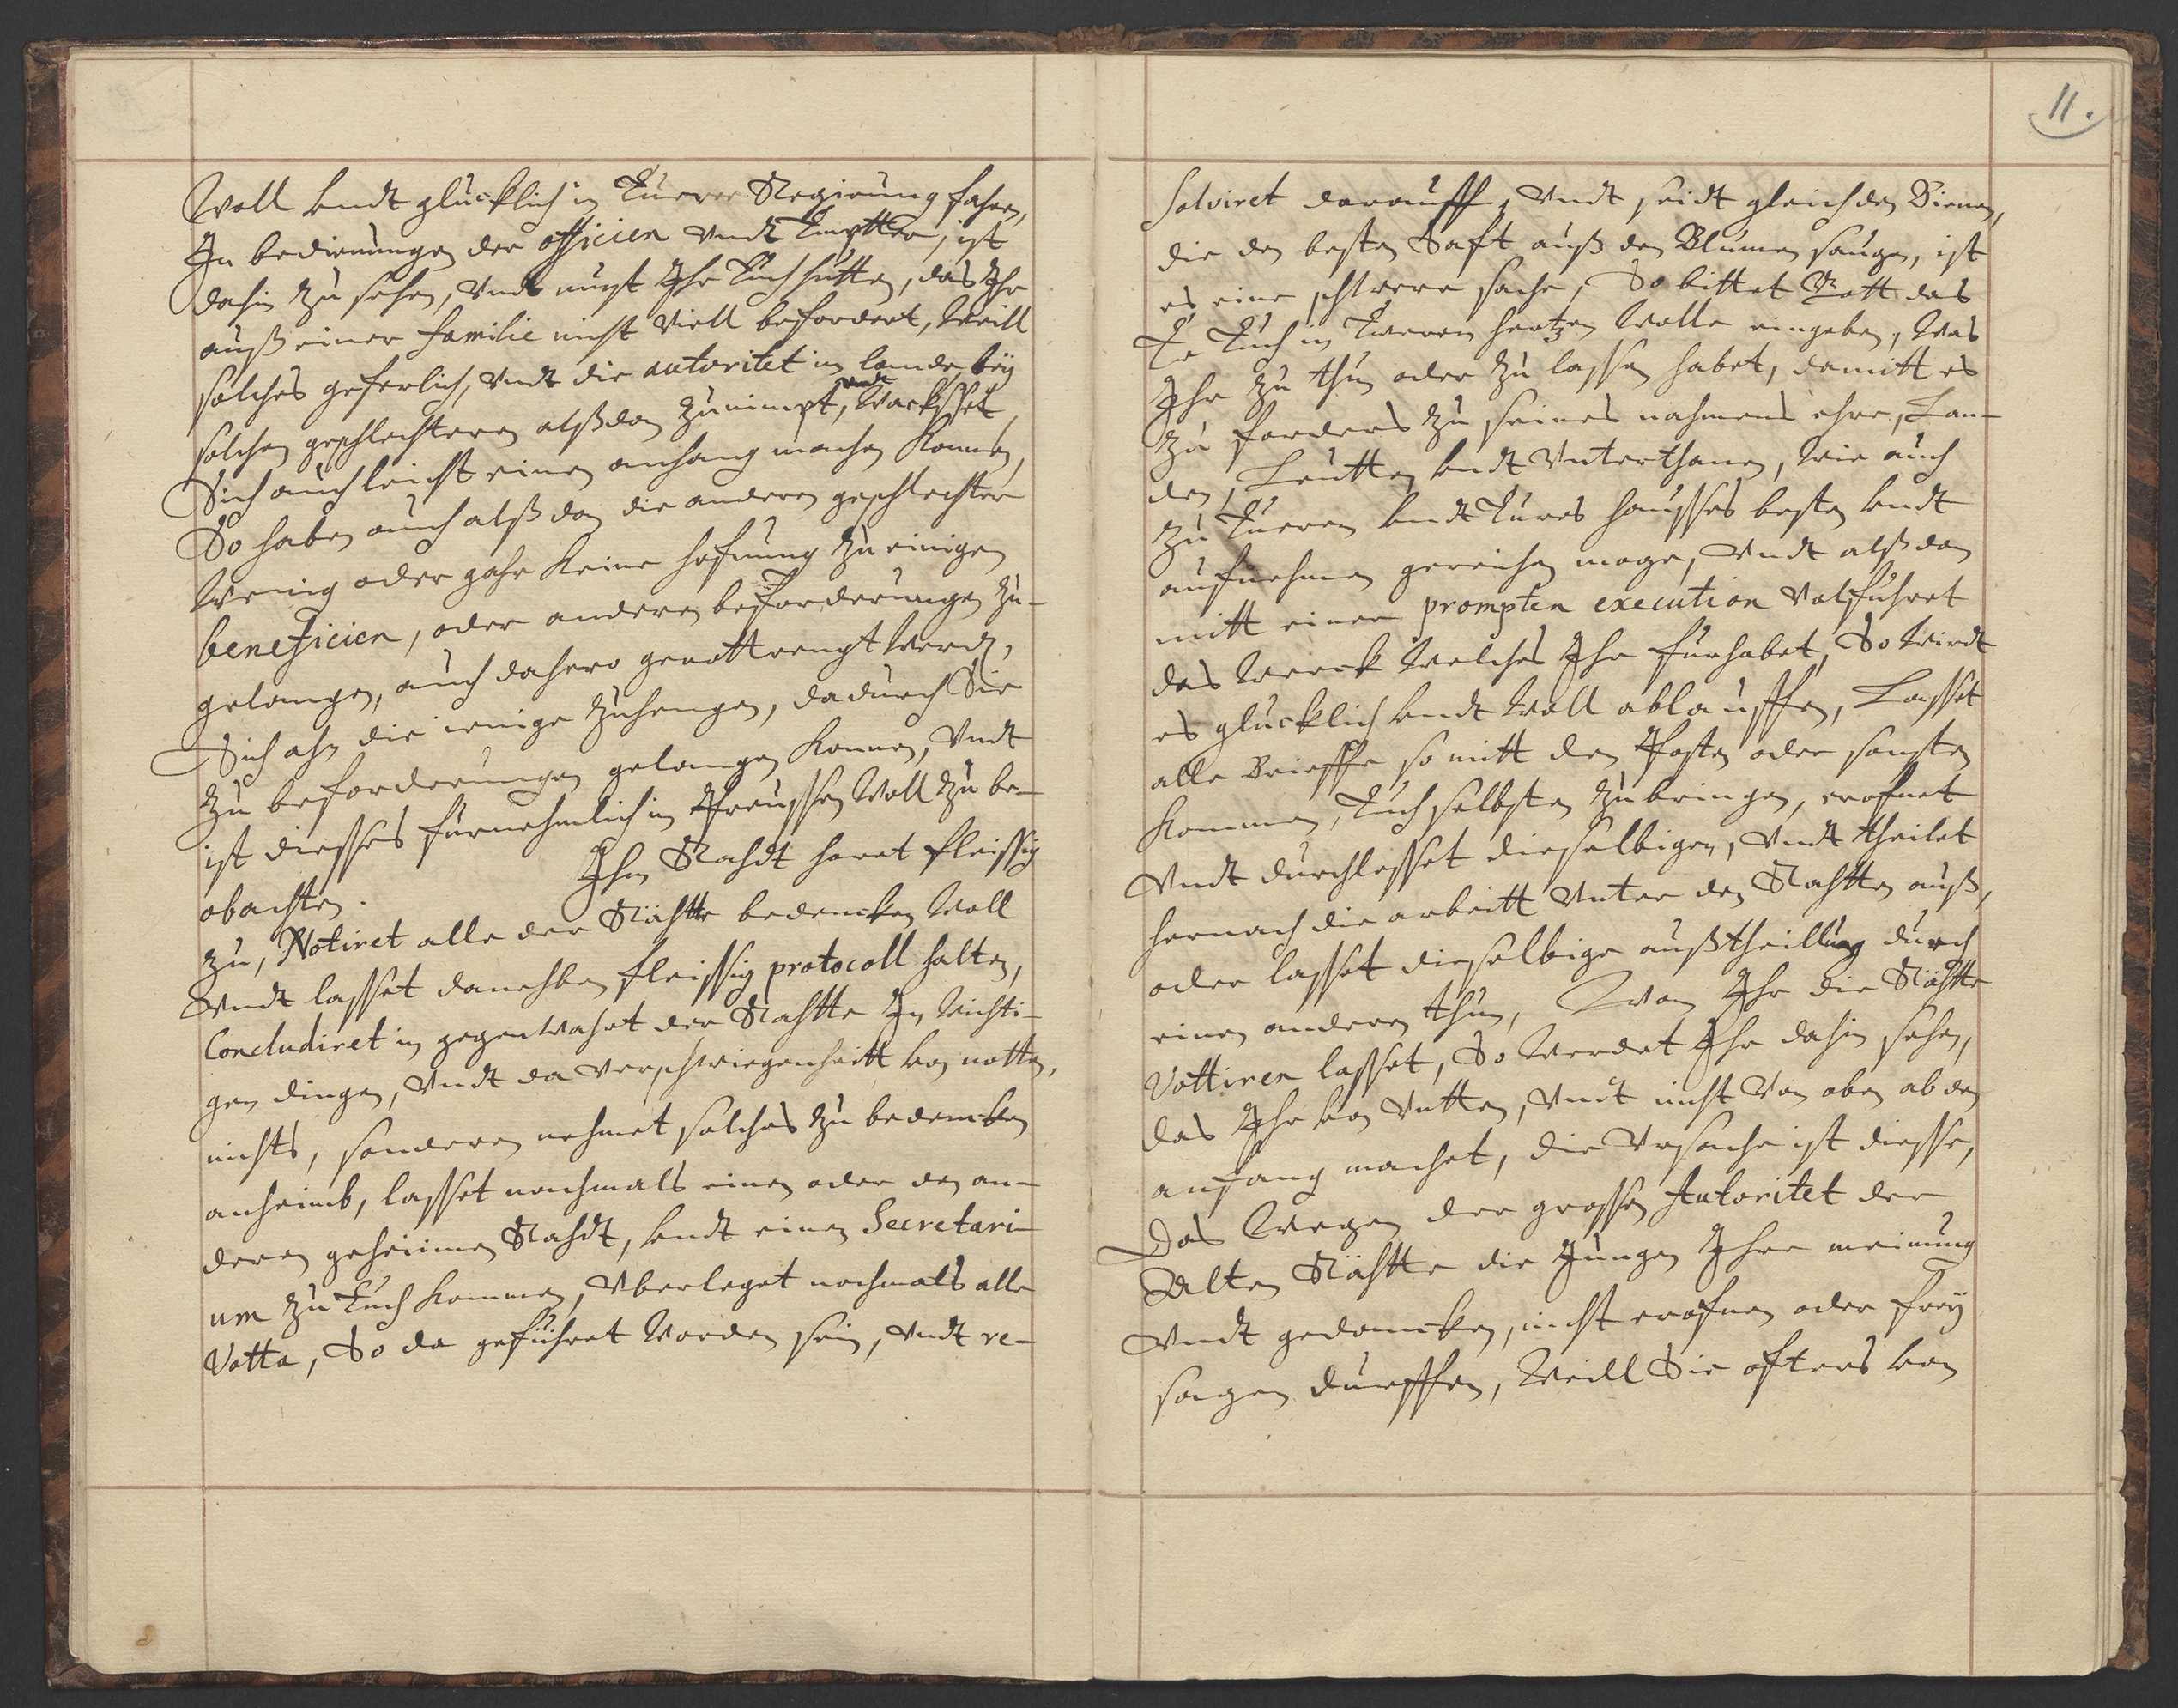 Woll undt glucklich in Euerer Regirung fahren,
In bedienungen der officien undt Emptter, ist
dahin zu sehen, undt must Ihr Euch hutten, das Ihr
auß einer familie nicht viell befordert, Weill
solches geferlich, undt die autoritet im lande bey
solchen geschlechteren alßdan zunimpt, undt Wackset
Sich auch leicht einen anhang machen konnen,
So haben auch alßdan die anderen geschlechter
Wenig oder gahr keine hofnung zu einigen
beneficien, oder anderen beforderungen zu-
gelangen, auch dahero genottrengt werden,
Sich ahn die ienige zuhengen, dadurch Sie
zu beforderungen gelangen konnen, undt
ist diesses furnehmlich in Preussen Woll zu be-
obachten. Ihm Rahdt horet fleissig
zu, Notiret alle der Rähtte bedencken Woll
undt lasset danehben fleissig protocoll halten,
Concludiret in gegenwahrt der Rähtte In Wichti-
gen dingen, undt da verschwiegenheitt von notten,
nichts, sonderen nehmet solches zu bedencken
anheimb, lasset nochmals einen oder den an-
deren geheimen Rahdt, undt einen Secretari-
um zu Euch kommen, Uberleget nochmals alle
Votta, So da gefuhret Worden sein, undt re-
11.
solviret darauff, undt seidt gleich den Bienen,
die den besten Saft auß den Blumen saugen, ist
es eine schwere sache, So bittet Gott das
Er Euch in Eueren hertzen Wolle eingeben, Was
Ihr zu thun oder zu lassen habet, damitt es
zu forders zu seines nahmens ehre, Lan-
den, Leutten undt Unterthanen, wie auch
zu Eueren undt Eures hausses besten undt
aufnehmen gereichen moge, undt alßdan
mitt einer prompten execution volfuhret
das Werck Welches Ihr furhabet, So Wirdt
es glucklich undt Woll ablauffen, Lasset
alle Brieffe so mitt den Posten oder sonsten
kommen, Euch selbsten zubringen, erofnet
undt durchlesset dieselbigen, undt theilet
hernach die arbeitt unter den Rähtten auß,
oder lasset dieselbige außtheillung durch
einen anderen thun, Wan Ihr die Rähtte
Vottiren lasset, So Werdet Ihr dahin sehen,
das Ihr von Untten, undt nicht von oben ab den
anfang machet, die Ursache ist diesse,
Das Wegen der grossen Autoritet der
Alten Rähtte die Jungen Ihre meinung
undt gedancken, nicht erofnen oder frey
sagen durffen, Weill Sie ofters von